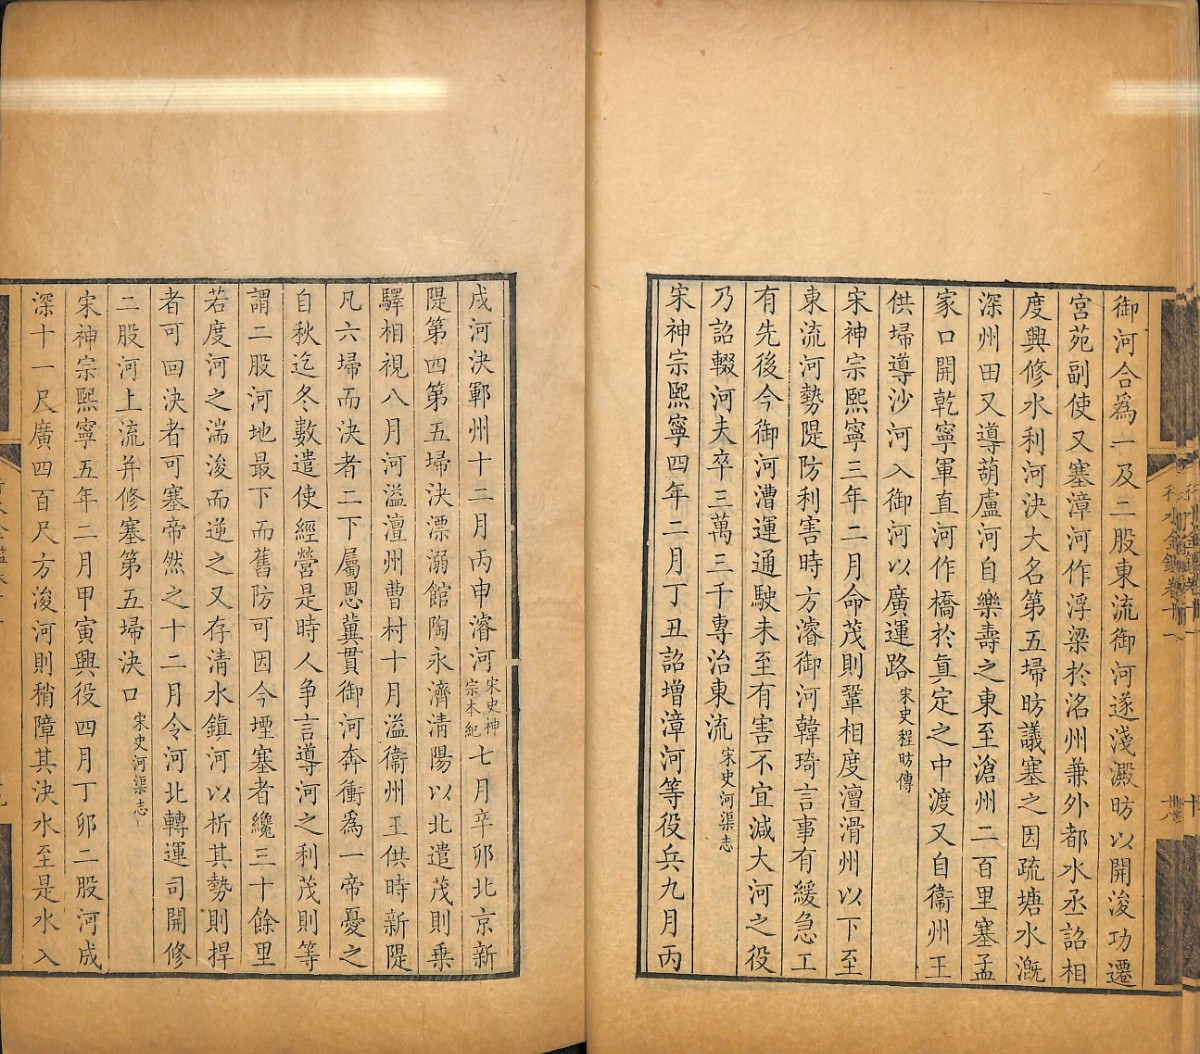 御河合爲一及二股東流御河遂淺澱昉以開浚功遷
宮苑副使又塞漳河作浮梁於洺州兼外都水丞詔相
度興修水利河決大名第五埽昉議塞之因疏塘水漑
深州田又導葫盧河自樂壽之東至滄州二百里塞孟
家口開乾寧軍直河作橋於眞定之中渡又自衞州王
供埽導沙河入御河以廣運路宋史程昉傳
宋神宗熙寧三年二月命茂則鞏相度澶滑州以下至
東流河勢隄防利害時方濬御河韓琦言事有緩急工
有先後今御河漕運通駛未至有害不宜減大河之役
乃詔輟河夫卒三萬三千專治東流宋史河渠志
宋神宗熙寧四年二月丁丑詔增漳河等役兵九月丙
戌河決鄆州十二月丙申濬河宋史神宗本紀七月辛卯北京新
隄第四第五埽決漂溺館陶永濟清陽以北遣茂則乗
驛相視八月河溢澶州曹村十月溢衞州王供時新隄
凡六埽而決者二下屬恩冀貫御河奔衝爲一帝憂之
自秋迄冬數遣使經營是時人爭言導河之利茂則等
謂二股河地最下而舊防可因今堙塞者纔三十餘里
若度河之湍浚而逆之又存清水鎮河以析其勢則捍
者可回決者可塞帝然之十二月令河北轉運司開修
二股河上流并修塞第五埽決口宋史河渠志
宋神宗熙寧五年二月甲寅興役四月丁卯二股河成
深十一尺廣四百尺方浚河則稍障其決水至是水入